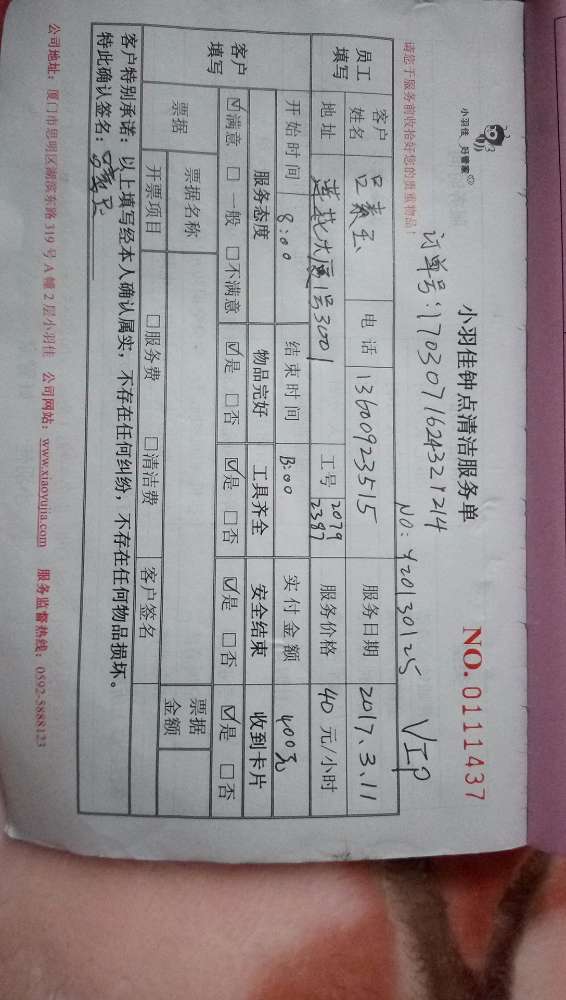 小羽佳 好管家
小羽佳钟点清洁服务单
NO.0111437
订单号:1703071624321214
NO:420130125 VIP
请您于服务前收拾好您的贵重物品!
员工填写
客户姓名 电话 13600923515 服务日期 2017.3.11
地址 莲花大厦1号3001 工号 2079 2387 服务价格 40 元/小时
开始时间 8:00 结束时间 13:00 实付金额 400元
客户填写
服务态度 物品完好 工具齐全 安全结束 收到卡片
☑满意 □一般 □不满意 ☑是 □否 ☑是 □否 ☑是 □否 ☑是 □否
票据 票据名称 票据金额
开票项目 □服务费 □清洁费 客户签名
客户特别承诺:以上填写经本人确认属实,不存在任何纠纷,不存在任何物品损坏。
特此确认签名:
公司地址:厦门市思明区湖滨东路319号A幢2层小羽佳 公司网站:www.xiaoyujia.com 服务监督热线:0592-5888123